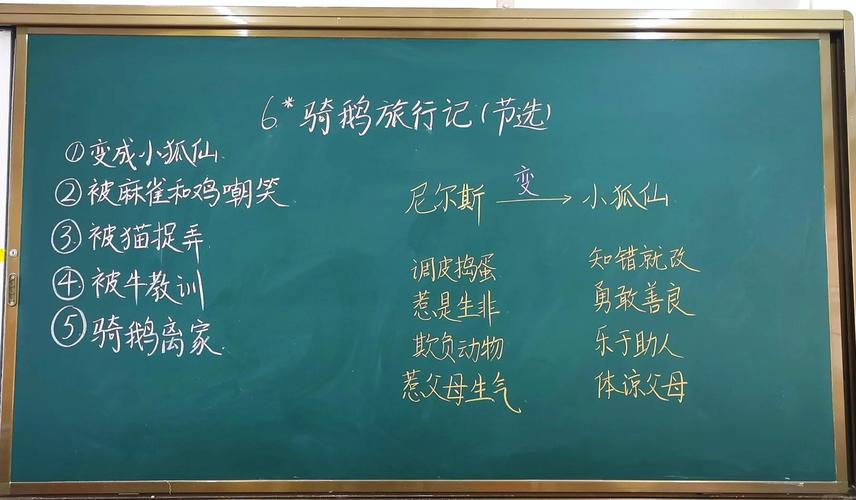 6*骑鹅旅行记(节选)
①变成小狐仙
②被麻雀和鸡嘲笑
③被猫捉弄
④被牛教训
⑤骑鹅离家
尼尔斯 变 → 小狐仙
调皮捣蛋 知错就改
惹是生非 勇敢善良
欺负动物 乐于助人
惹父母生气 体谅父母